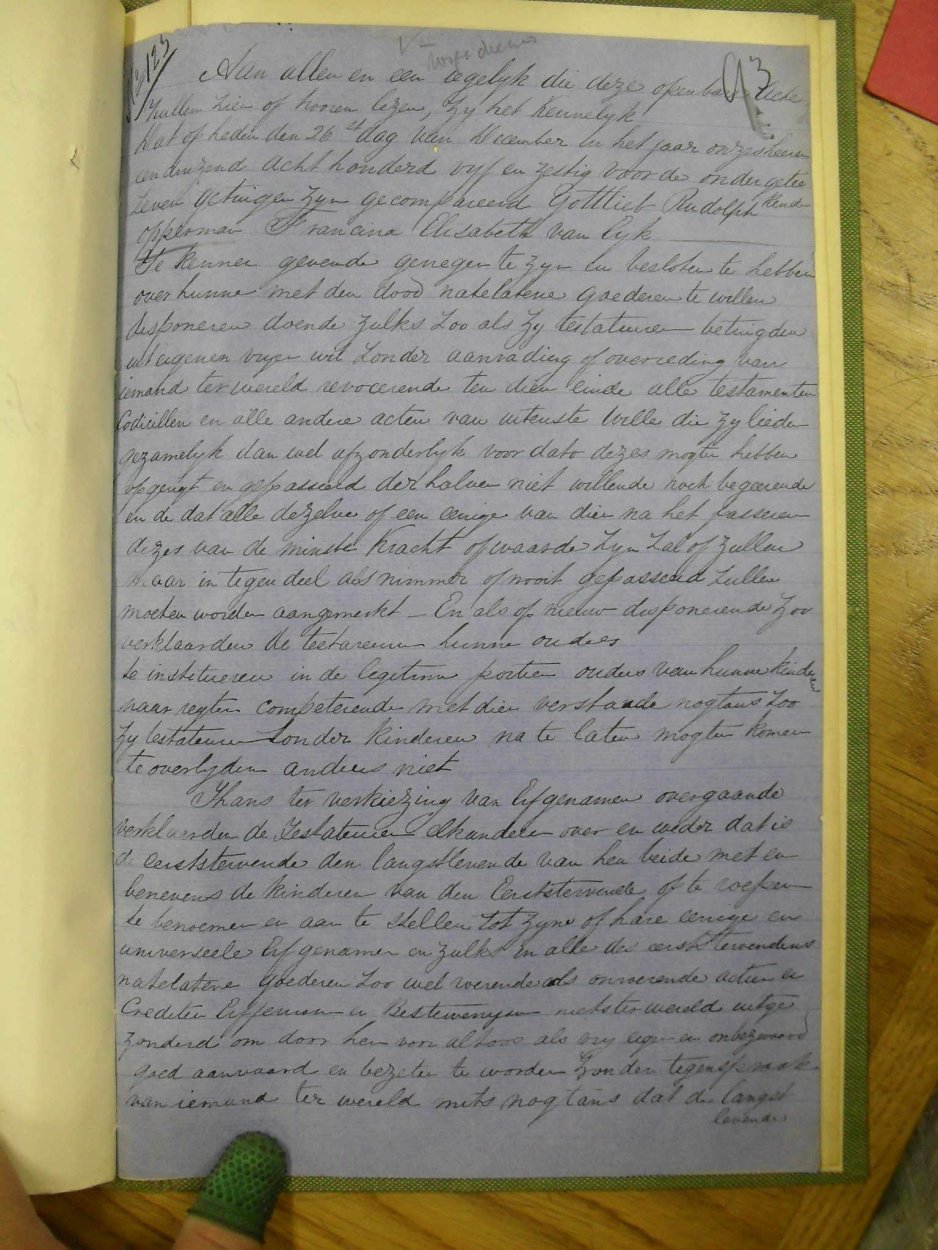 123
93
Aan allen en een iegelyk die deze openbare Acte
zullen zien of hooren lezen, zy het kennelyk
dat op heden den 26 st dag van December in het jaar onzes heeren
een duizend acht honderd vyf en zestig voor de ondergetee
kende
leven getuigen zyn gecompareerd Gottlieb Rudolph
opperman Francina Elisabeth van Eyk
Te kennen gevende genegen te zyn en besloten te hebben
over hunne met den dood natelatene goederen te willen
disponeren doende zulks zoo als zy testateuren betuigden
uit eigenen vryen wil zonder aanrading of overreding van
iemand ter wereld revocerende ten dien einde alle testamenten
Codicillen en alle andere acten van uiterste wille die zy lieden
gezamelyk dan wel afzonderlyk voor dato dezes mogten hebben
opgerigt en gepasseerd derhalven niet willende noch begeerende
en de dat alle dezelve of een eenige van dien na het passeren
dezes van de minste kracht of waarde zyn zal of zullen
maar in tegendeel als nimmer of nooit gepasseerd zullen
moeten worden aangemerkt – En als op nieuw disponerende zoo
verklaarden de testateuren hunne ouders
te institueren in de legitime portien ouders van hunne kinderen
naar regten competerende met dien verstande nogtans zoo
zy testateuren zonder kinderen na te laten mogten komen
te overlyden anders niet
Thans ter verkiezing van Erfgenamen overgaande
verklaarden de Testateuren elkanderen over en weder dat is
de eerststervende den langstlevende van hen beide met en
benevens de kinderen van den Eerststervende of te roepen
te benoemen en aan te stellen tot zyne of hare eenige en
universeele Erfgenamen en zulks in alle des eerststervendens
natelatene goederen zoo wel roerende als onroerende actien en
Crediten Erffenissen niets ter wereld uitge
zonderd om door hen voor altoos als vry eigen en onbezwaard
goed aanvaard en bezeten te worden zonder tegenspraak
van iemand ter wereld mits nogtans dat de langst
levende